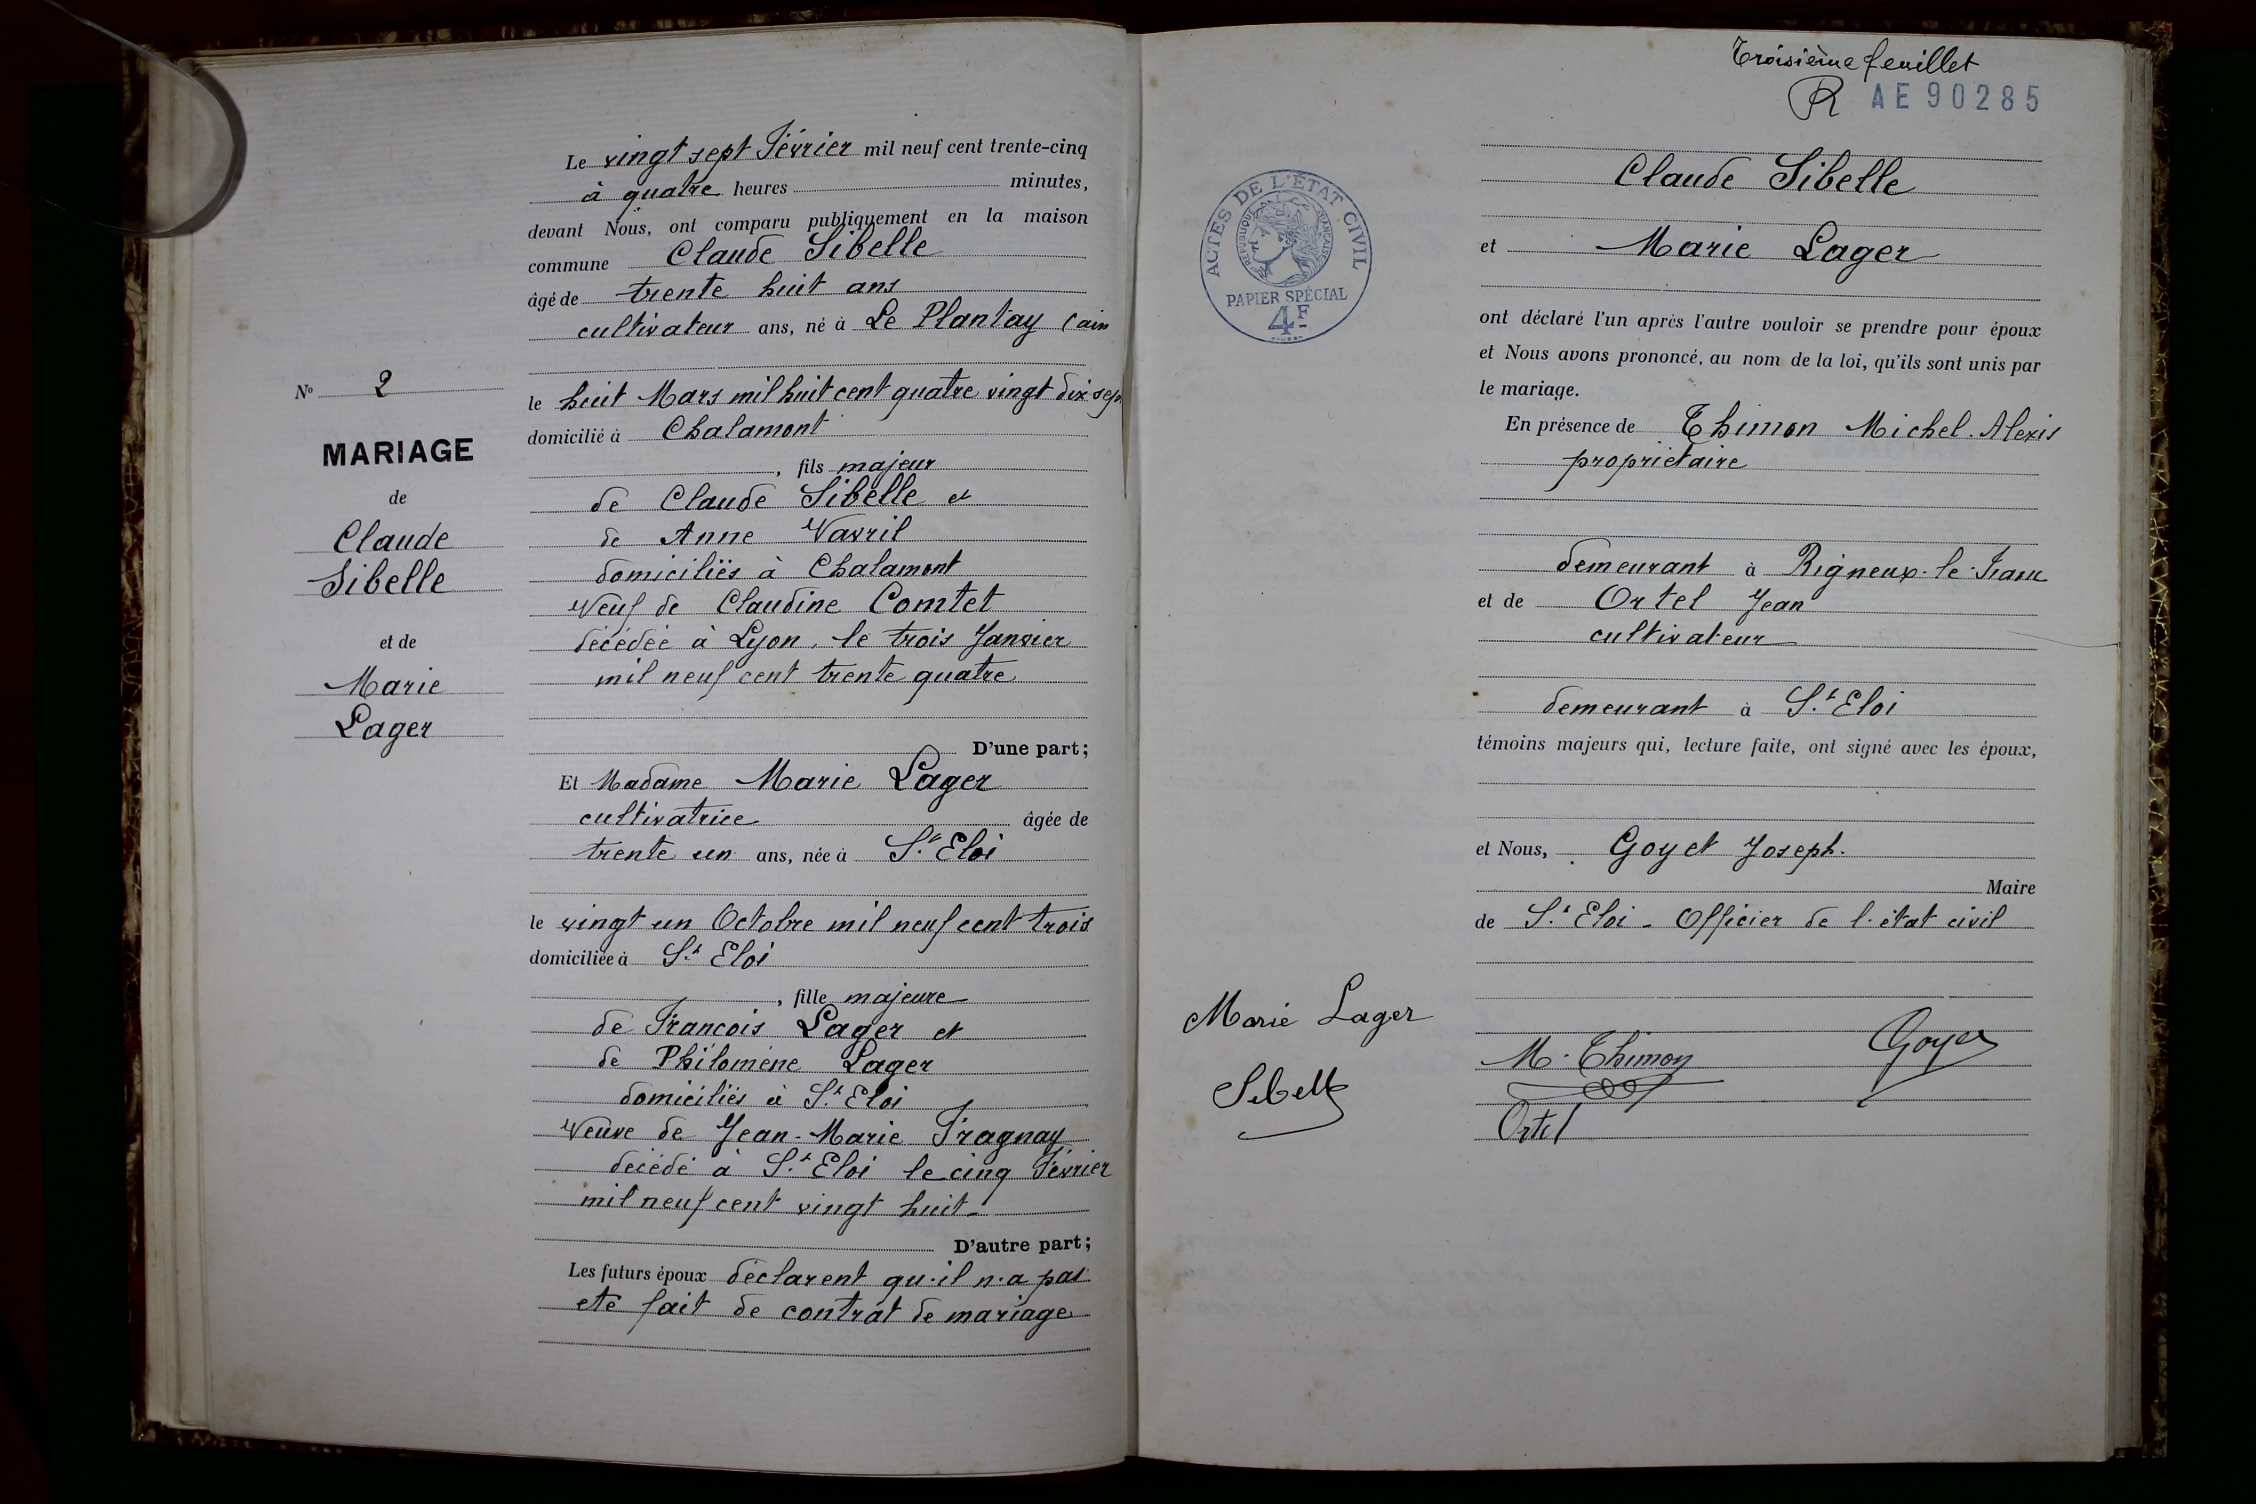 N° 2
MARIAGE
de
Claude
Sibelle
et de
Marie
Lager
Le vingt sept Février mil neuf cent trente-cinq
à quatre heures minutes,
devant Nous, ont comparu publiquement en la maison
commune Claude Sibelle
âgé de trente huit ans
cultivateur ans, né à Le Plantay (ain
le huit Mars mil huit cent quatre vingt dix sep
domicilié à Chalamont
, fils majeur
de Claude Sibelle et
de Anne Vavril
domiciliés à Chalamont
Veuf de Claudine Comtet
décédée à Lyon, le trois Janvier
mil neuf cent trente quatre
D'une part;
Et Madame Marie Lager
cultivatrice âgée de
trente un ans, née à St Eloi
le vingt un Octobre mil neuf cent trois
domiciliée à St Eloi
, fille majeure
de François Lager et
de Philomène Lager
domiciliés à St Eloi
Veuve de Jean-Marie Fragnay
décédé à St Eloi le cinq Février
mil neuf cent vingt huit
D'autre part;
Les futurs époux déclarent qu'il n'a pas
été fait de contrat de mariage
Troisième feuillet
R AE90285
ACTES DE L'ÉTAT CIVIL
RÉPUBLIQUE FRANÇAISE
PAPIER SPÉCIAL
4F
Claude Sibelle
et Marie Lager
ont déclaré l'un après l'autre vouloir se prendre pour époux
et Nous avons prononcé, au nom de la loi, qu'ils sont unis par
le mariage.
En présence de Thimon Michel. Alexis
propriétaire
demeurant à Rigneux-le-Franc
et de Ortel Jean
cultivateur
demeurant à St Eloi
témoins majeurs qui, lecture faite, ont signé avec les époux,
et Nous, Goyet Joseph.
Maire
de St Eloi - Officier de l'état civil
Marie Lager
Sibelle
M. Thimon
Goyet
Ortel